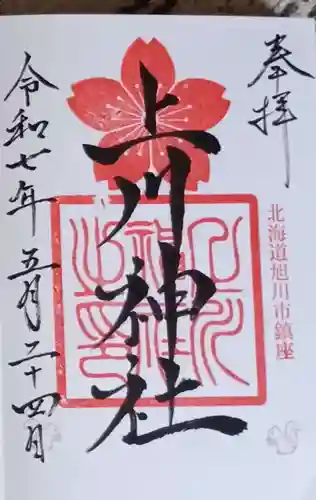 奉拝
北海道旭川市鎮座
上川神社
上川神社之印
令和七年 五月 二十四日